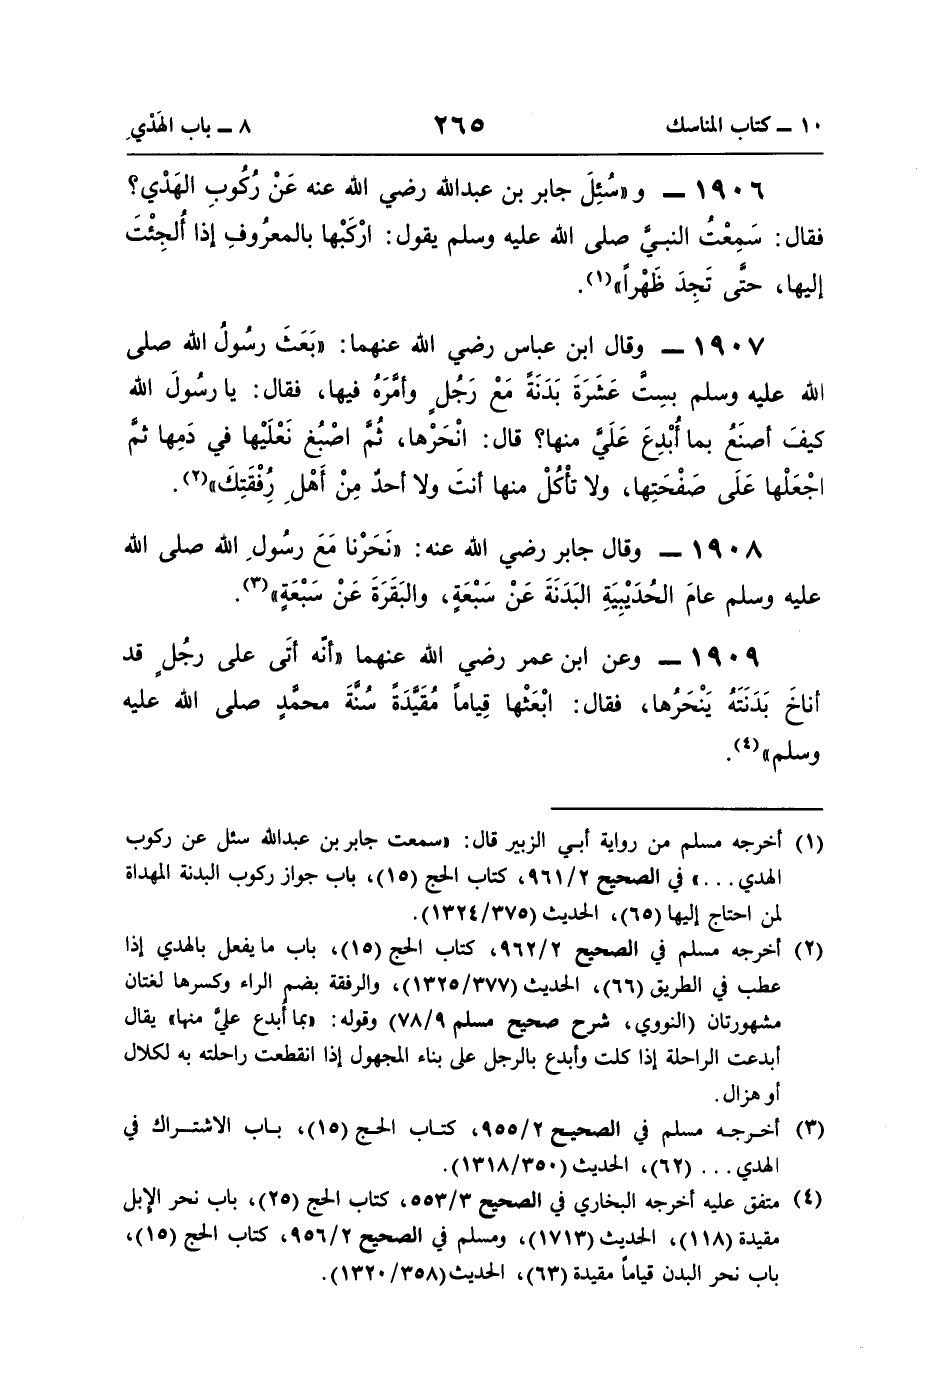 ١٠ ــ كتاب المناسك ٢٦٥ ٨ ــ باب الهَدْيِ
١٩٠٦ ــ و «سُئِلَ جابر بن عبدالله رضي الله عنه عَنْ رُكُوبِ الهَدْي؟
فقال: سَمِعْتُ النبيَّ صلى الله عليه وسلم يقول: ارْكَبْها بالمعرُوفِ إذا أُلجِئْتَ
إليها، حتَّى تَجِدَ ظَهْراً»(١).
١٩٠٧ ــ وقال ابن عباس رضي الله عنهما: «بَعَثَ رسُولُ الله صلى
الله عليه وسلم بسِتَّ عَشَرَةَ بَدَنَةً مَعْ رَجُلٍ وأَمَّرَهُ فيها، فقال: يا رسُولَ الله
كيفَ أصنَعُ بما أُبْدِعَ عَلَيَّ منها؟ قال: انْحَرْها، ثُمَّ اصْبُغ نَعْلَيْها في دَمِها ثمَّ
اجْعَلْها عَلَى صَفْحَتِها، ولا تأْكُلْ منها أنتَ ولا أحدٌ مِنْ أَهْلِ رُفْقَتِكَ»(٢).
١٩٠٨ ــ وقال جابر رضي الله عنه: «نَحَرْنا مَعَ رسُولِ الله صلى الله
عليه وسلم عامَ الحُدَيْبِيَةِ البَدَنَةَ عَنْ سَبْعَةٍ، والبَقَرَةَ عَنْ سَبْعَةٍ»(٣).
١٩٠٩ ــ وعن ابن عمر رضي الله عنهما «أنّه أتَى على رجُلٍ قد
أناخَ بَدَنَتَهُ يَنْحَرُها، فقال: ابْعَثْها قِياماً مُقَيَّدَةً سُنَّةَ محمَّدٍ صلى الله عليه
وسلم»(٤).
(١) أخرجه مسلم من رواية أبي الزبير قال: «سمعت جابر بن عبدالله سئل عن ركوب
الهدي...» في الصحيح ٩٦١/٢، كتاب الحج (١٥)، باب جواز ركوب البدنة المهداة
لمن احتاج إليها (٦٥)، الحديث (١٣٢٤/٣٧٥).
(٢) أخرجه مسلم في الصحيح ٩٦٢/٢، كتاب الحج (١٥)، باب ما يفعل بالهدي إذا
عطب في الطريق (٦٦)، الحديث (١٣٢٥/٣٧٧)، والرفقة بضم الراء وكسرها لغتان
مشهورتان (النووي، شرح صحيح مسلم ٧٨/٩) وقوله: «بما أُبدع عليَّ منها» يقال
أبدعت الراحلة إذا كلت وأبدع بالرجل على بناء المجهول إذا انقطعت راحلته به لكلال
أو هزال.
(٣) أخرجه مسلم في الصحيح ٩٥٥/٢، كتاب الحج (١٥)، باب الاشتراك في
الهدي... (٦٢)، الحديث (١٣١٨/٣٥٠).
(٤) متفق عليه أخرجه البخاري في الصحيح ٥٥٣/٣، كتاب الحج (٢٥)، باب نحر الإبل
مقيدة (١١٨)، الحديث (١٧١٣)، ومسلم في الصحيح ٩٥٦/٢، كتاب الحج (١٥)،
باب نحر البدن قياماً مقيدة (٦٣)، الحديث (١٣٢٠/٣٥٨).